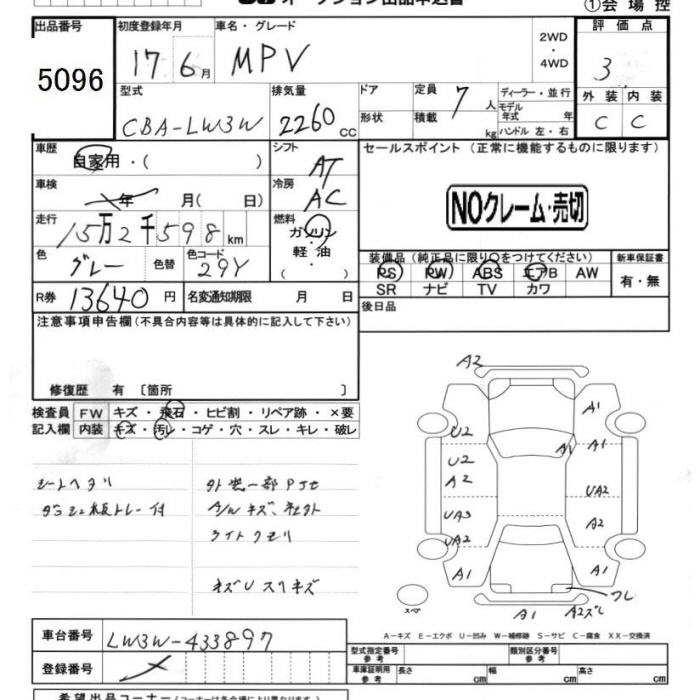 ①会場控
出品番号 初度登録年月 車名・グレード 2WD・4WD 評価点
5096 17 6月 MPV 3
型式 排気量 ドア 定員 7人 ディーラー・並行 外装 内装
CBA-LW3W 2260cc 形状 積載 kg モデル年式 年 ハンドル 左・右 C C
車歴 自家用・( ) シフト AT セールスポイント (正常に機能するものに限ります)
車検 年 月( 日) 冷房 AC
NOクレーム・売切
走行 15万2千598km 燃料 ガソリン・軽油・( )
色 グレー 色替 色コード 29Y
装備品 (純正品に限り○をつけてください) 新車保証書
PS PW ABS エアB AW 有・無
SR ナビ TV カワ
R券 13640円 名変通知期限 月 日
後日品
注意事項申告欄(不具合内容等は具体的に記入して下さい)
修復歴 有 〔箇所 〕
検査員 FW キズ・飛石・ヒビ割・リペア跡・×要
記入欄 内装 キズ・汚レ・コゲ・穴・スレ・キレ・破レ
シートヘタリ
ライトクモリ
A2
A1
U2
A1 A1
U2
A2 UA2
UA3 A2
UA2
A1 A1
ワレ
スペア
A1 A2ズレ
A-キズ E-エクボ U-凹み W-補修跡 S-サビ C-腐食 XX-交換済
車台番号 LW3W-433897
登録番号
型式指定番号 参考 類別区分番号 参考
車庫証明用 参考 長さ cm 幅 cm 高さ cm
希望出品コーナー